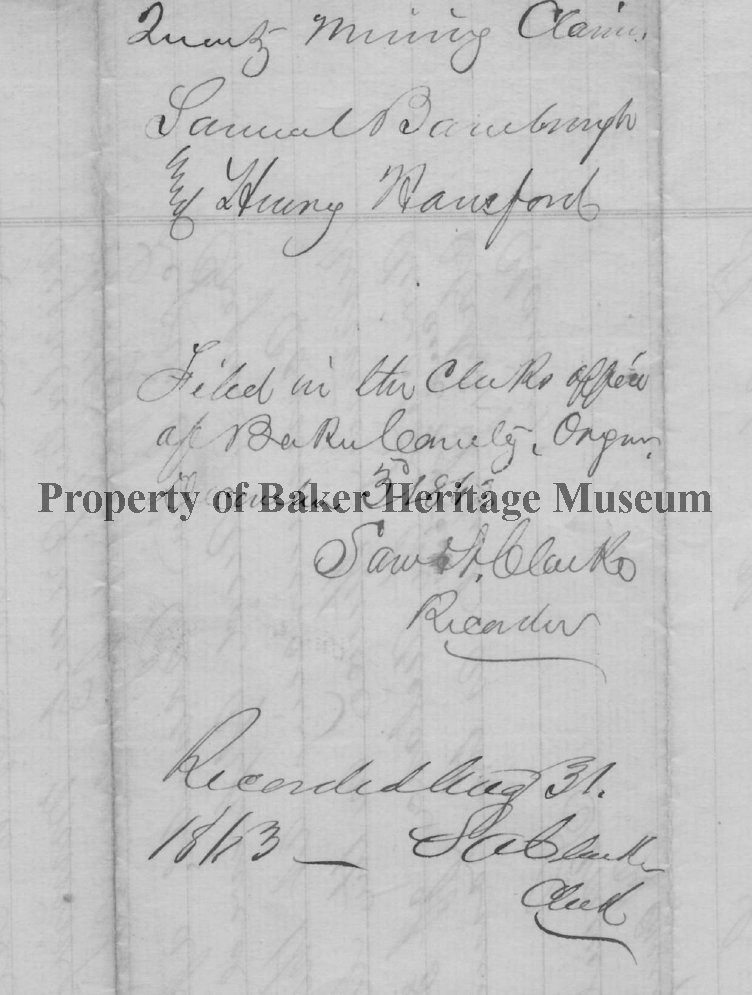 Quartz Mining Claim.
Samuel Bamburgh
& Henry Hansford
Filed in the Clerks office
of Baker County, Oregon,
3d 1862
Property of Baker Heritage Museum
Clarke
Recorder
Recorded Aug 31.
1863 — S A Clarke
Clerk